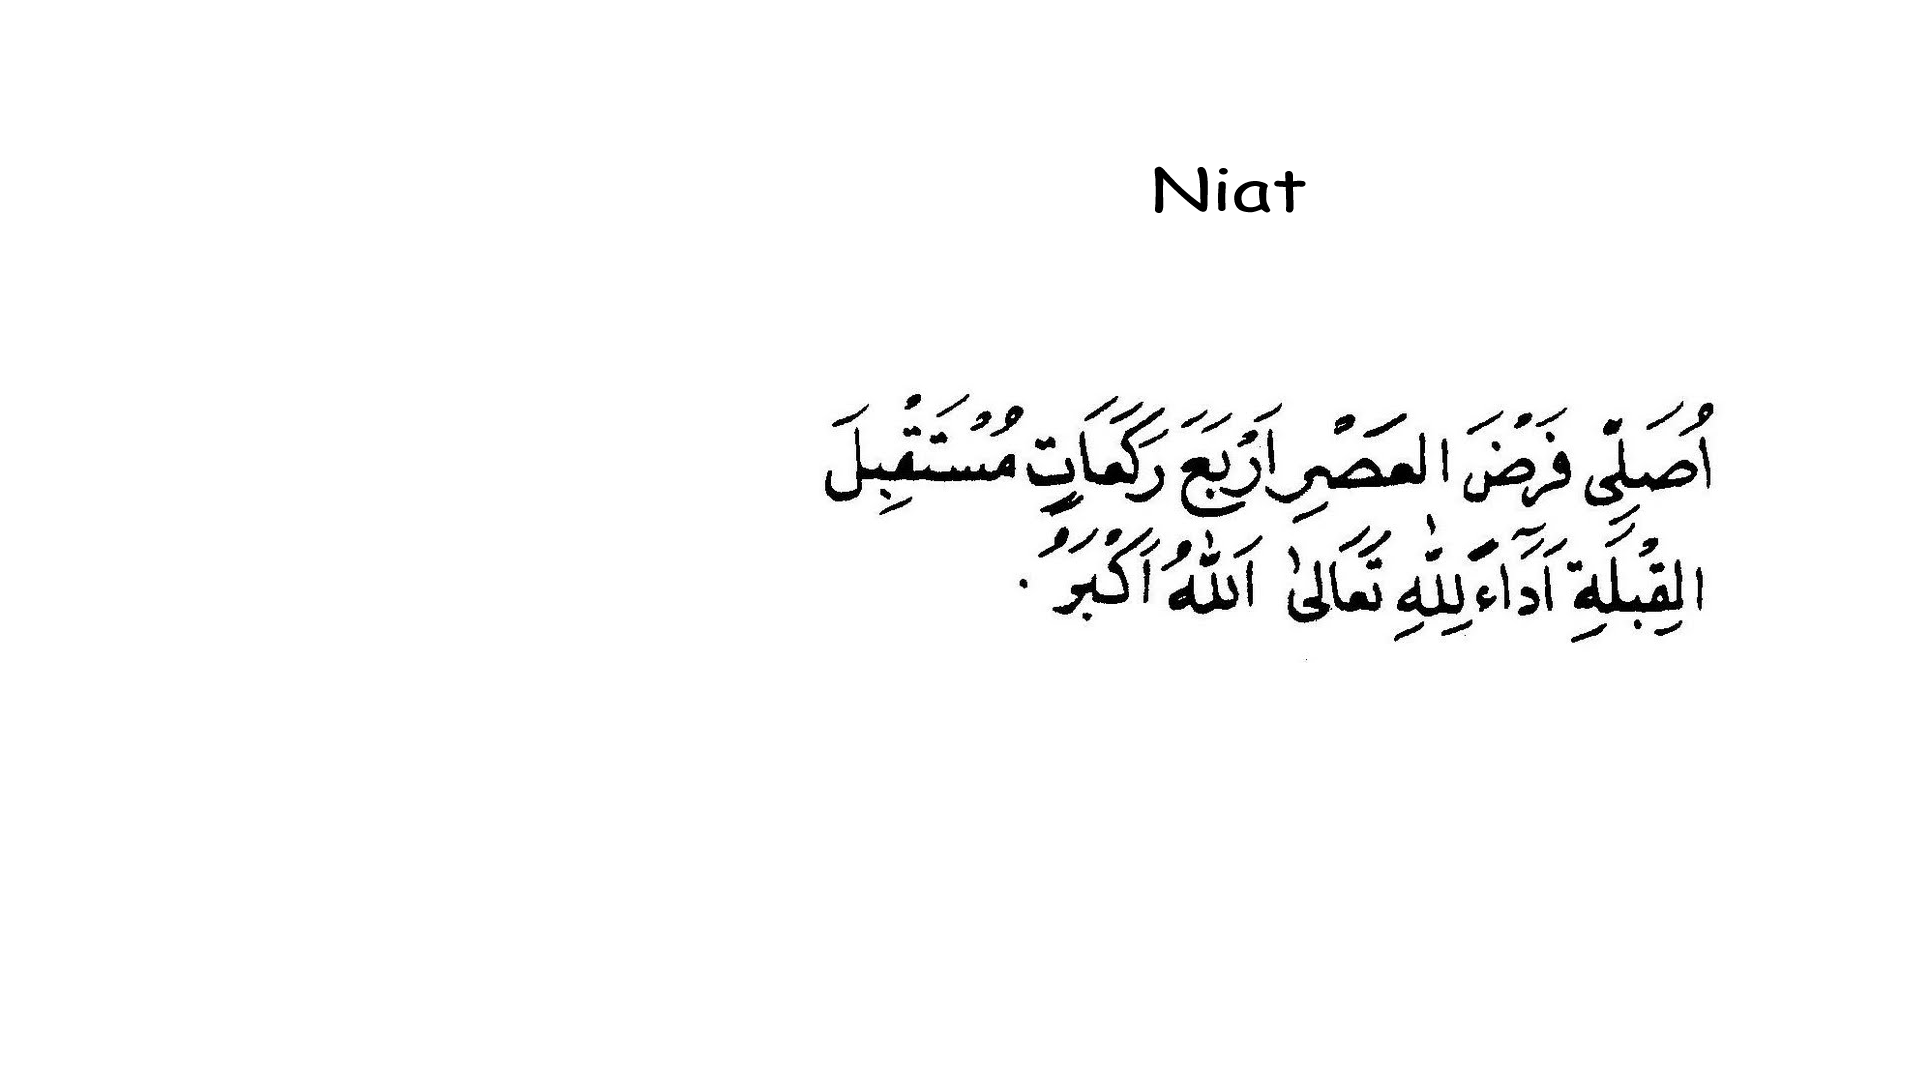 Niat
اُصَلِّى فَرْضَ العَصْرِ اَرْبَعَ رَكَعَاتٍ مُسْتَقْبِلَ
القِبْلَةِ اَدَآءً لِلّٰهِ تَعَالىٰ اَللّٰهُ اَكْبَرُ .